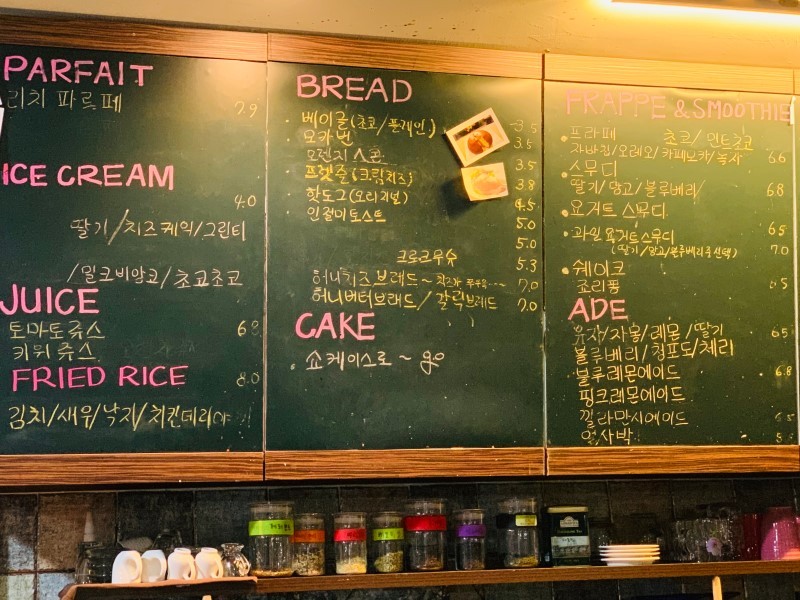 PARFAIT
리치 파르페 7.9
ICE CREAM
4.0
딸기/치즈케익/그린티
/밀크비앙코/초코초코
JUICE
토마토쥬스 6.8
키위 쥬스
FRIED RICE 8.0
김치/새우/낙지/치킨데리야
BREAD
베이글(초코/플레인) 3.5
모카번 3.5
오렌지 스콘 3.5
프랫즐(크림치즈) 3.8
핫도그(오리지널) 4.5
인절미토스트 5.0
5.0
크로크무슈 5.3
허니치즈브레드~ 7.0
허니버터브래드/갈릭브레드 7.0
CAKE
쇼케이스로 ~ go
FRAPPE & SMOOTHIE
프라페 초코/민트초코
자바칩/오레오/카페모카/녹차 6.6
스무디
딸기/망고/블루베리/ 6.8
요거트 스무디 6.5
과일요거트스무디 7.0
(딸기/망고/블루베리중선택)
쉐이크
조리퐁 6.5
ADE
유자/자몽/레몬/딸기 6.5
블루베리/청포도/체리
블루레몬에이드 6.8
핑크레몬에이드
깔라만시에이드 6.5